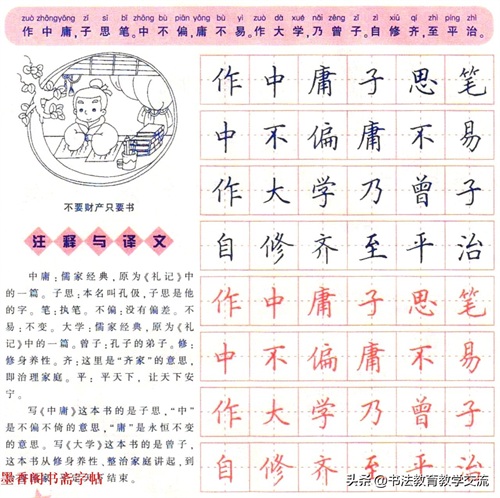 zuò zhōng yōng zǐ sī bǐ zhōng bù piān yōng bù yì zuò dà xué nǎi zēng zǐ zì xiū qí zhì píng zhì
作中庸,子思笔。中不偏,庸不易。作大学,乃曾子。自修齐,至平治。
作中庸子思笔
中不偏庸不易
作大学乃曾子
自修齐至平治
作中庸子思笔
中不偏庸不易
作大学乃曾子
自修齐至平治
不要财产只要书
注释与译文
中庸:儒家经典,原为《礼记》中
的一篇。子思:本名叫孔伋,子思是他
的字。笔:执笔。不偏:没有偏差。不
易:不变。大学:儒家经典,原为《礼
记》中的一篇。曾子:孔子的弟子。修:
修身养性。齐:这里是“齐家”的意思,
即治理家庭。平:平天下,让天下安
宁。
写《中庸》这本书的是子思,“中”
是不偏不倚的意思,“庸”是永恒不变
的意思。写《大学》这本书的是曾子,
这本书从修身养性、整治家庭讲起,到
结束。
墨香阁书斋字帖
头条@书法教育教学交流